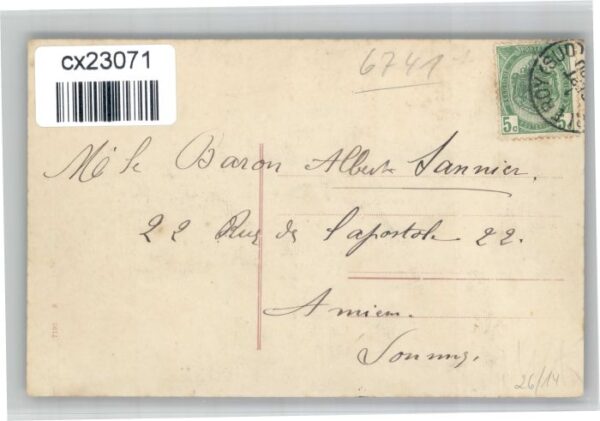 cx23071
6741
5c 5c
ROY (SUD)
Mr le Baron Albert Sannier.
22 Rue de Lapostole 22.
Amiens.
Somme.
26/14